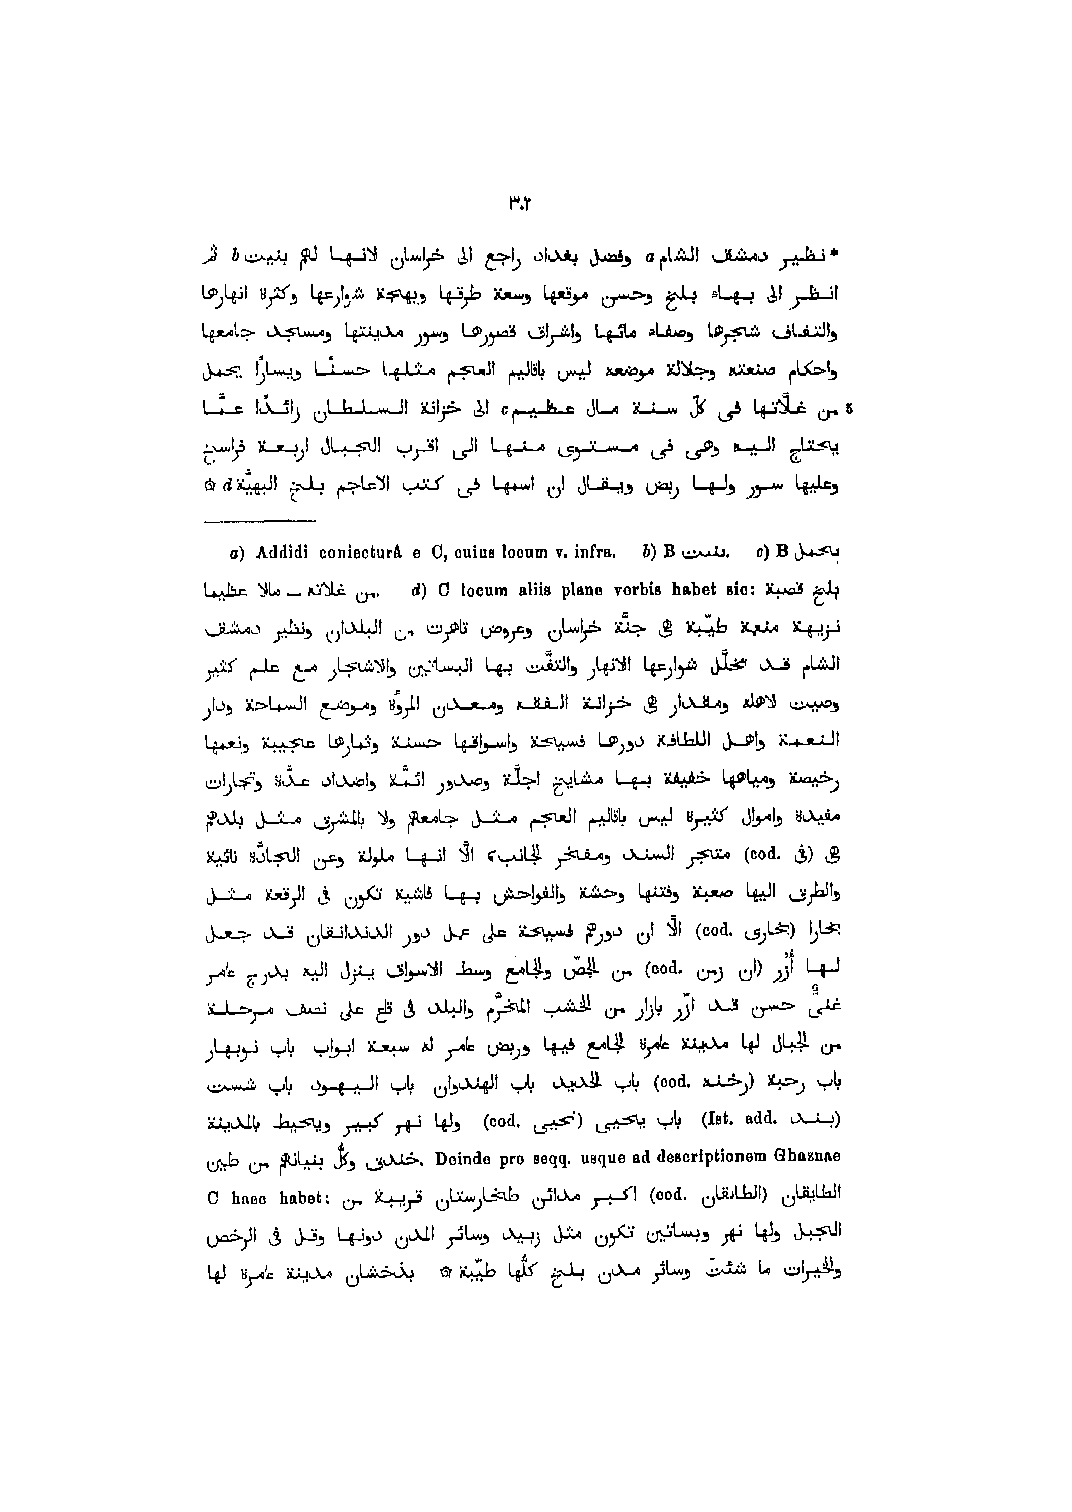 ٣٠٢
*نظير دمشق الشام a وفضل بغداد راجع الى خراسان لانها لهم بنيت b ثم
انظر الى بهاء بلخ وحسن موقعها وسعة طرقها وبهجة شوارعها وكثرة انهارها
والتفاف شجرها وصفاء مائها واشراق قصورها وسور مدينتها ومسجد جامعها
واحكام صنعته وجلالة موضعه ليس باقاليم العجم مثلها حسنًا ويسارًا يحمل
5 من غلّاتها فى كلّ سنة مال عظيم c الى خزانة السلطان زائدًا عمَّا
يحتاج اليه وهى فى مستوى منها الى اقرب الجبال اربعة فراسخ
وعليها سور ولها ربض ويقال ان اسمها فى كتب الاعاجم بلخ البهيَّة d ۞
a) Addidi coniecturâ e C, cuius locum v. infra. b) B بنيت. c) B يحمل
من غلاته — مالا عظيما. d) C locum aliis plane verbis habet sic: بلخ قصبة
نزيهة منعة طيّبة فى جنَّة خراسان وعروض تاهرت من البلدان ونظير دمشق
الشام قد تخلّل شوارعها الانهار والتفَّت بها البساتين والاشجار مع علم كثير
وصيت لاهله ومقدار فى خزانة الفقه ومعدن المروّة وموضع السماحة ودار
النعمة واهل اللطافة دورها فسيحة واسواقها حسنة وثمارها عجيبة ونعمها
رخيصة ومياهها خفيفة بها مشايخ اجلّة وصدور ائمّة واضداد عدّة وتجارات
مفيدة واموال كثيرة ليس باقاليم العجم مثل جامعهم ولا بالمشرق مثل بلدهم
فى (cod. فى) متجر السند ومفخر الجانب ؟ الّا انها ملولة وعن الجادّة نائية
والطرق اليها صعبة وفتنها وحشة والفواحش بها فاشية تكون فى الرقعة مثل
بخارا (cod. بخارى) الّا ان دورهم فسيحة على عمل دور الدندانقان قد جعل
لها أُزُر (cod. ان زمن) من الجصّ والجامع وسط الاسواق ينزل اليه بدرج عامر
غنىّ حسن قد ازّر بازار من الخشب المخرَّم والبلد فى قاع على نصف مرحلة
من الجبال لها مدينة عامرة الجامع فيها وربض عامر له سبعة ابواب باب نوبهار
باب رحبة (cod. رخنه) باب الحديد باب الهندوان باب اليهود باب شست
(Ist. add. بند) باب يحيى (cod. نحيى) ولها نهر كبير ويحيط بالمدينة
خندق وكلّ بنيانهم من طين. Deinde pro seqq. usque ad descriptionem Ghaznae
C haec habet: الطايقان (cod. الطانقان) اكبر مدائن طخارستان قريبة من
الجبل ولها نهر وبساتين تكون مثل زبيد وسائر المدن دونها وقل فى الرخص
والخيرات ما شئت وسائر مدن بلخ كلّها طيّبة ۞ بذخشان مدينة عامرة لها